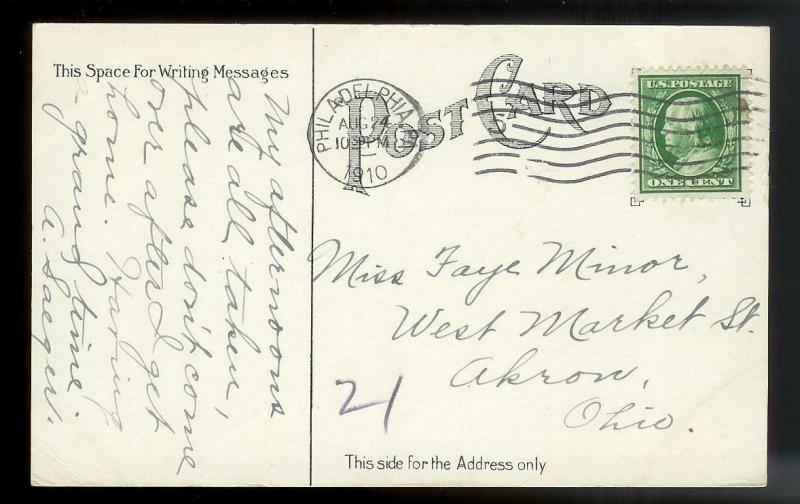 This Space For Writing Messages
My afternoons
are all taken,
please don't come
over after I get
home. Having
a grand time.
A. Saeger.
POST CARD
PHILADELPHIA, PA.
AUG 24
1910
U.S. POSTAGE
ONE CENT
Miss Faye Minor,
West Market St.
Akron,
Ohio.
21
This side for the Address only